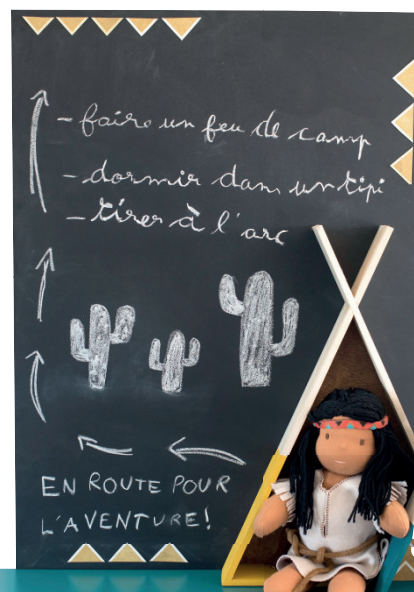 - faire un feu de camp
- dormir dans un tipi
- tirer à l'arc
EN ROUTE POUR
L'AVENTURE!